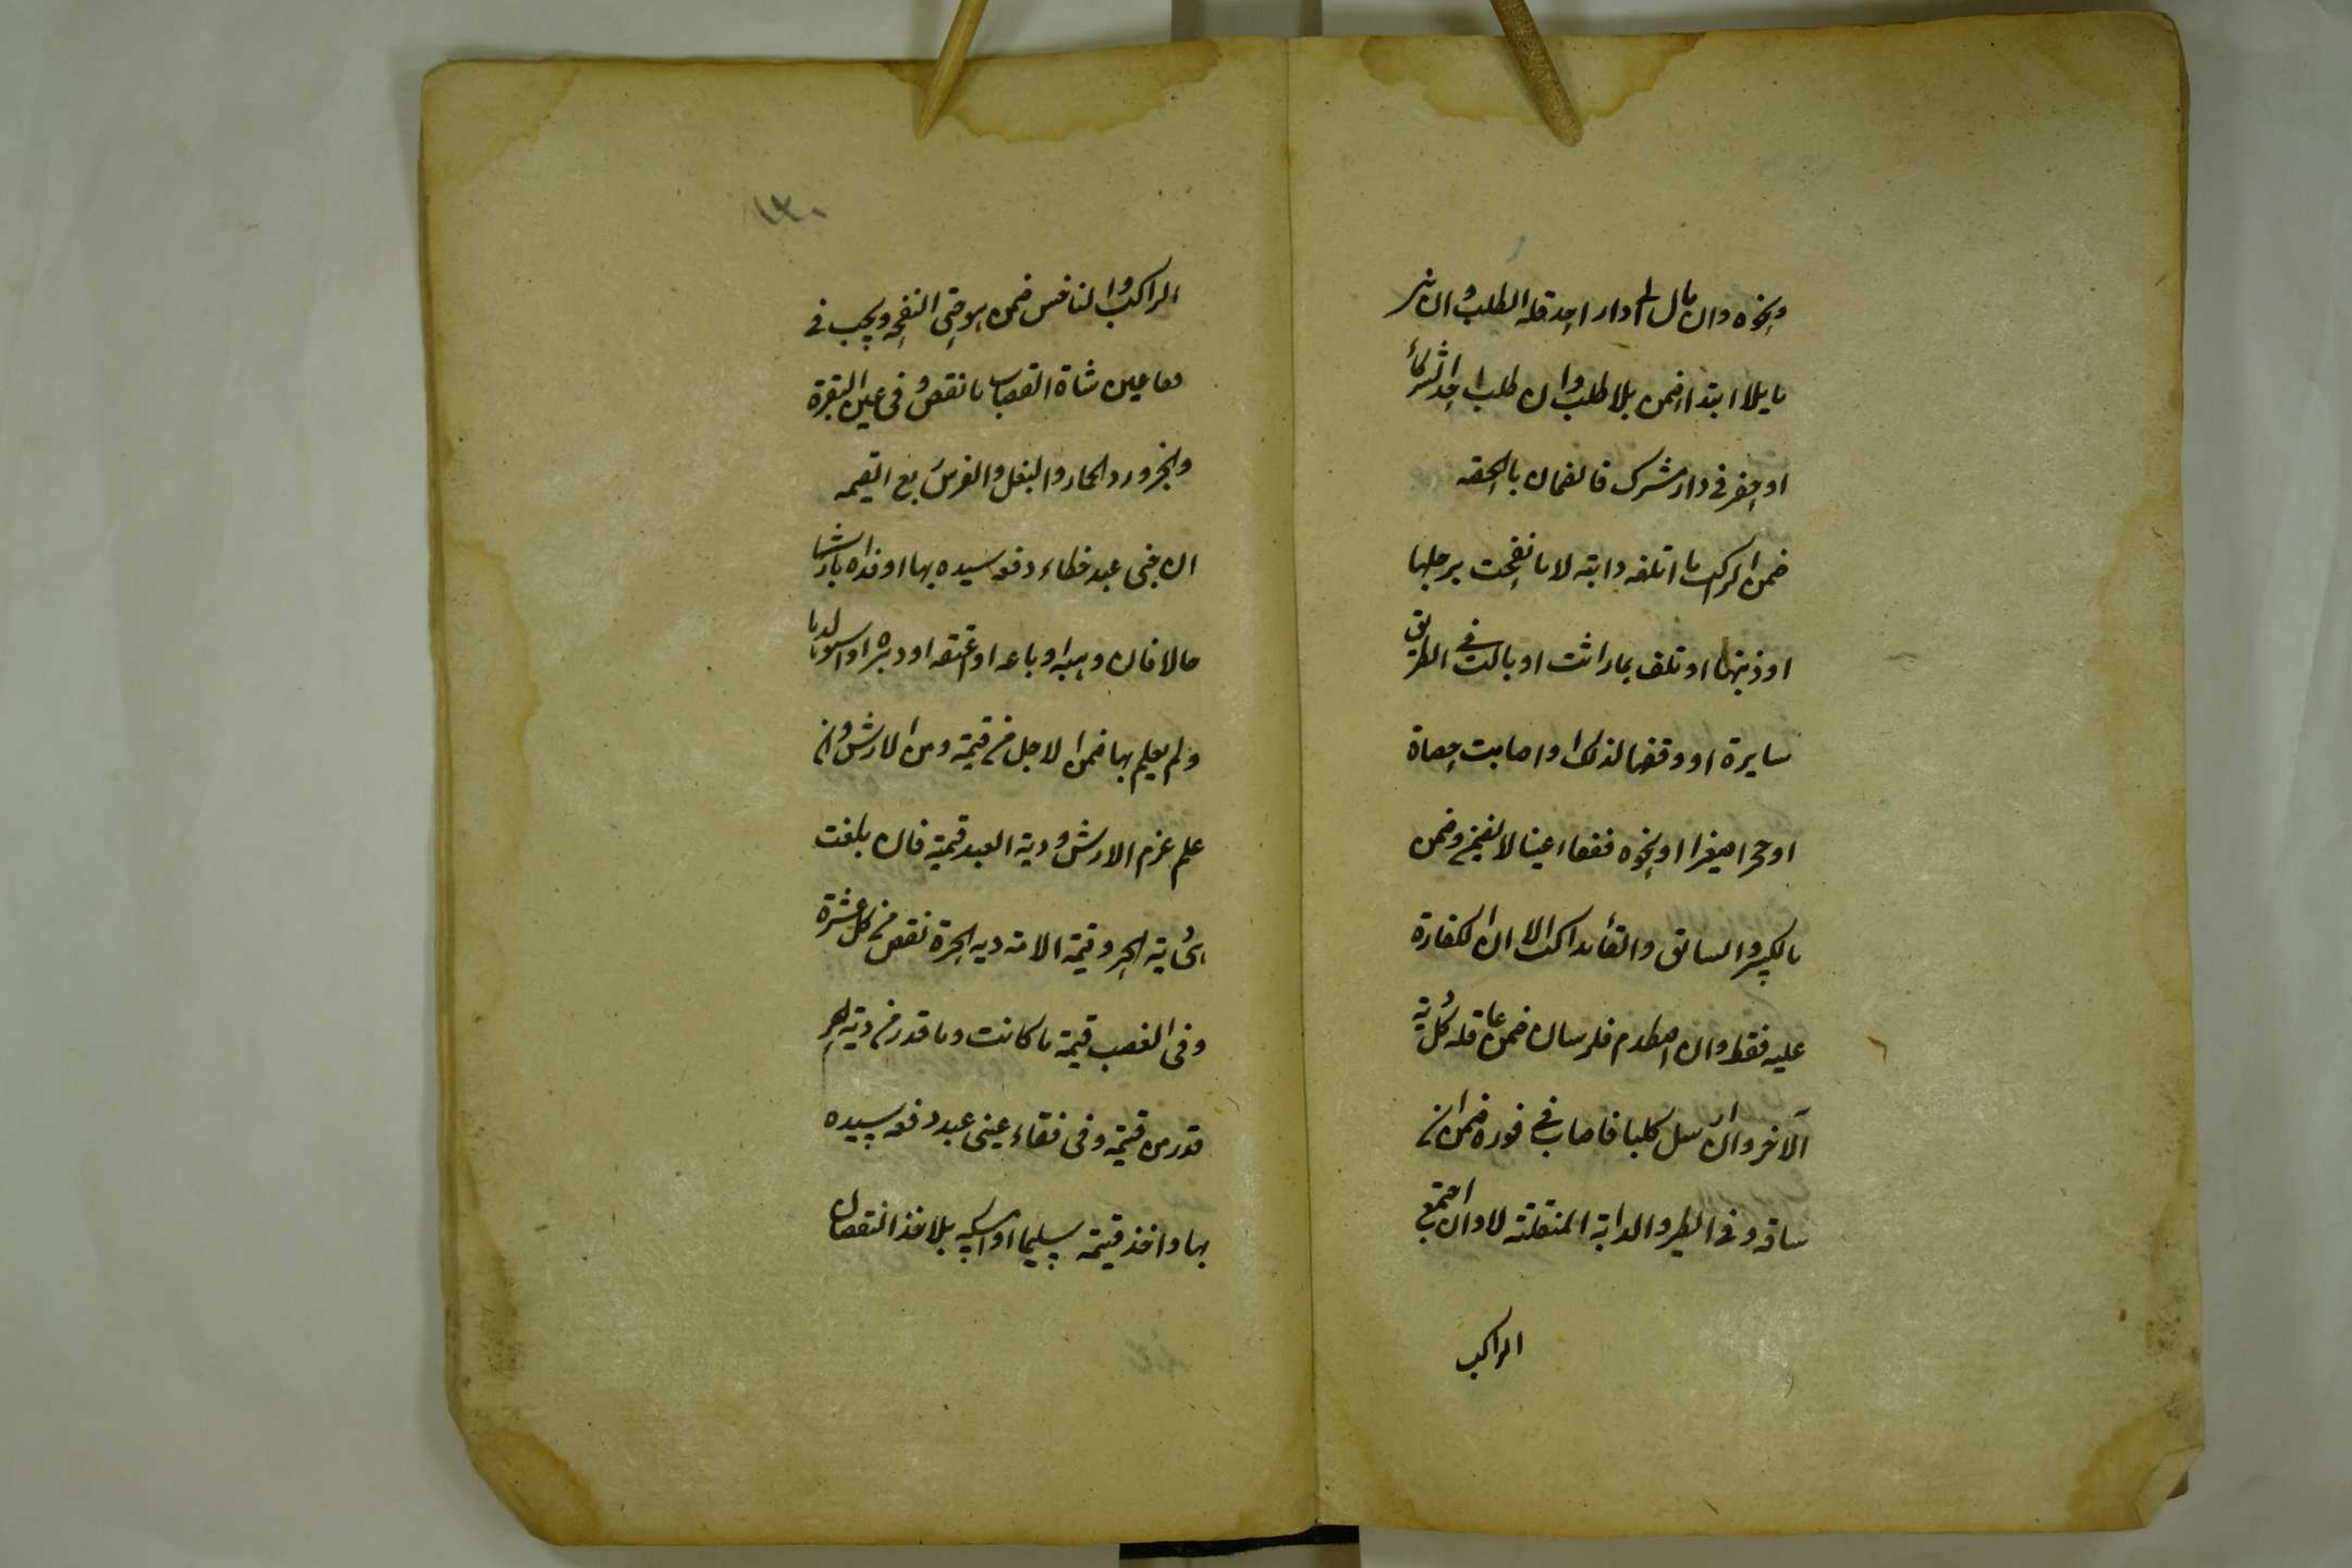 ونحوه وان مال الى دار احد فله الطلب وان شر
مايلا ابتداء ضمن بلا طلب وان طلب احد الشركاء
او حفر في دار مشترك فالضمان بالحصة
ضمن الراكب ما اتلفه دابته لا ما نفحت برجلها
او ذنبها او تلف بما راثت او بالت في الطريق
سايرة او وقفها لذلك او اصابت حصاة
او حجرا صغيرا او نحوه ففقاء عينا لا يضمن وضمن
بالكبير والسائق والقائد كالراكب الا ان الكفارة
عليه فقط وان اصطدم فارسان ضمن عاقلة كل دية
الآخر وان ارسل كلبا فاصاب في فوره ضمن ان
ساقه وفي الطير والدابة المنفلتة لا وان اجتمع
الراكب
١٣٠
الراكب والناخس ضمن هو حتى النفحة ويجب في
فقا عين شاة القصاب ما نقص وفي عين البقرة
والجزور والحمار والبغل والفرس ربع القيمة
ان جنى عبد خطاء دفعه سيده بها او فداه بارشها
حالا فان وهبه او باعه او اعتقه او دبره او استولدها
ولم يعلم بها ضمن الاقل من قيمته ومن الارش وان
علم غرم الارش ودية العبد قيمته فان بلغت
دية الحر وقيمة الامة دية الحرة نقص من كل عشرة
وفي الغصب قيمته ما كانت وما قدر من دية الحر
قدر من قيمته وفي فقاء عيني عبد دفعه سيده
بها واخذ قيمته سليما او امسكه بلا اخذ النقصان